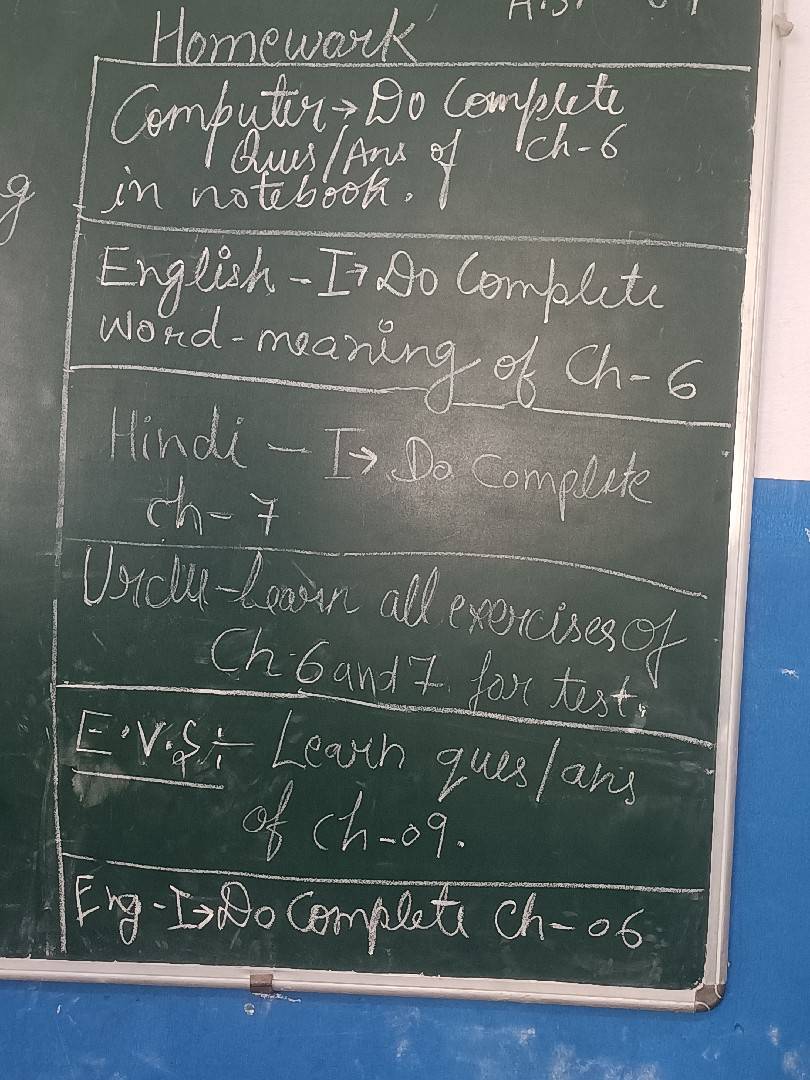 Homework
Computer → Do Complete
Ques/Ans of ch-6
in notebook.
English - I → Do Complete
word-meaning of Ch-6
Hindi - I → Do Complete
ch-7
Urdu - Learn all exercises of
Ch-6 and 7 for test.
E.V.S :- Learn ques/ans
of ch-09.
Eng - I → Do Complete Ch-06